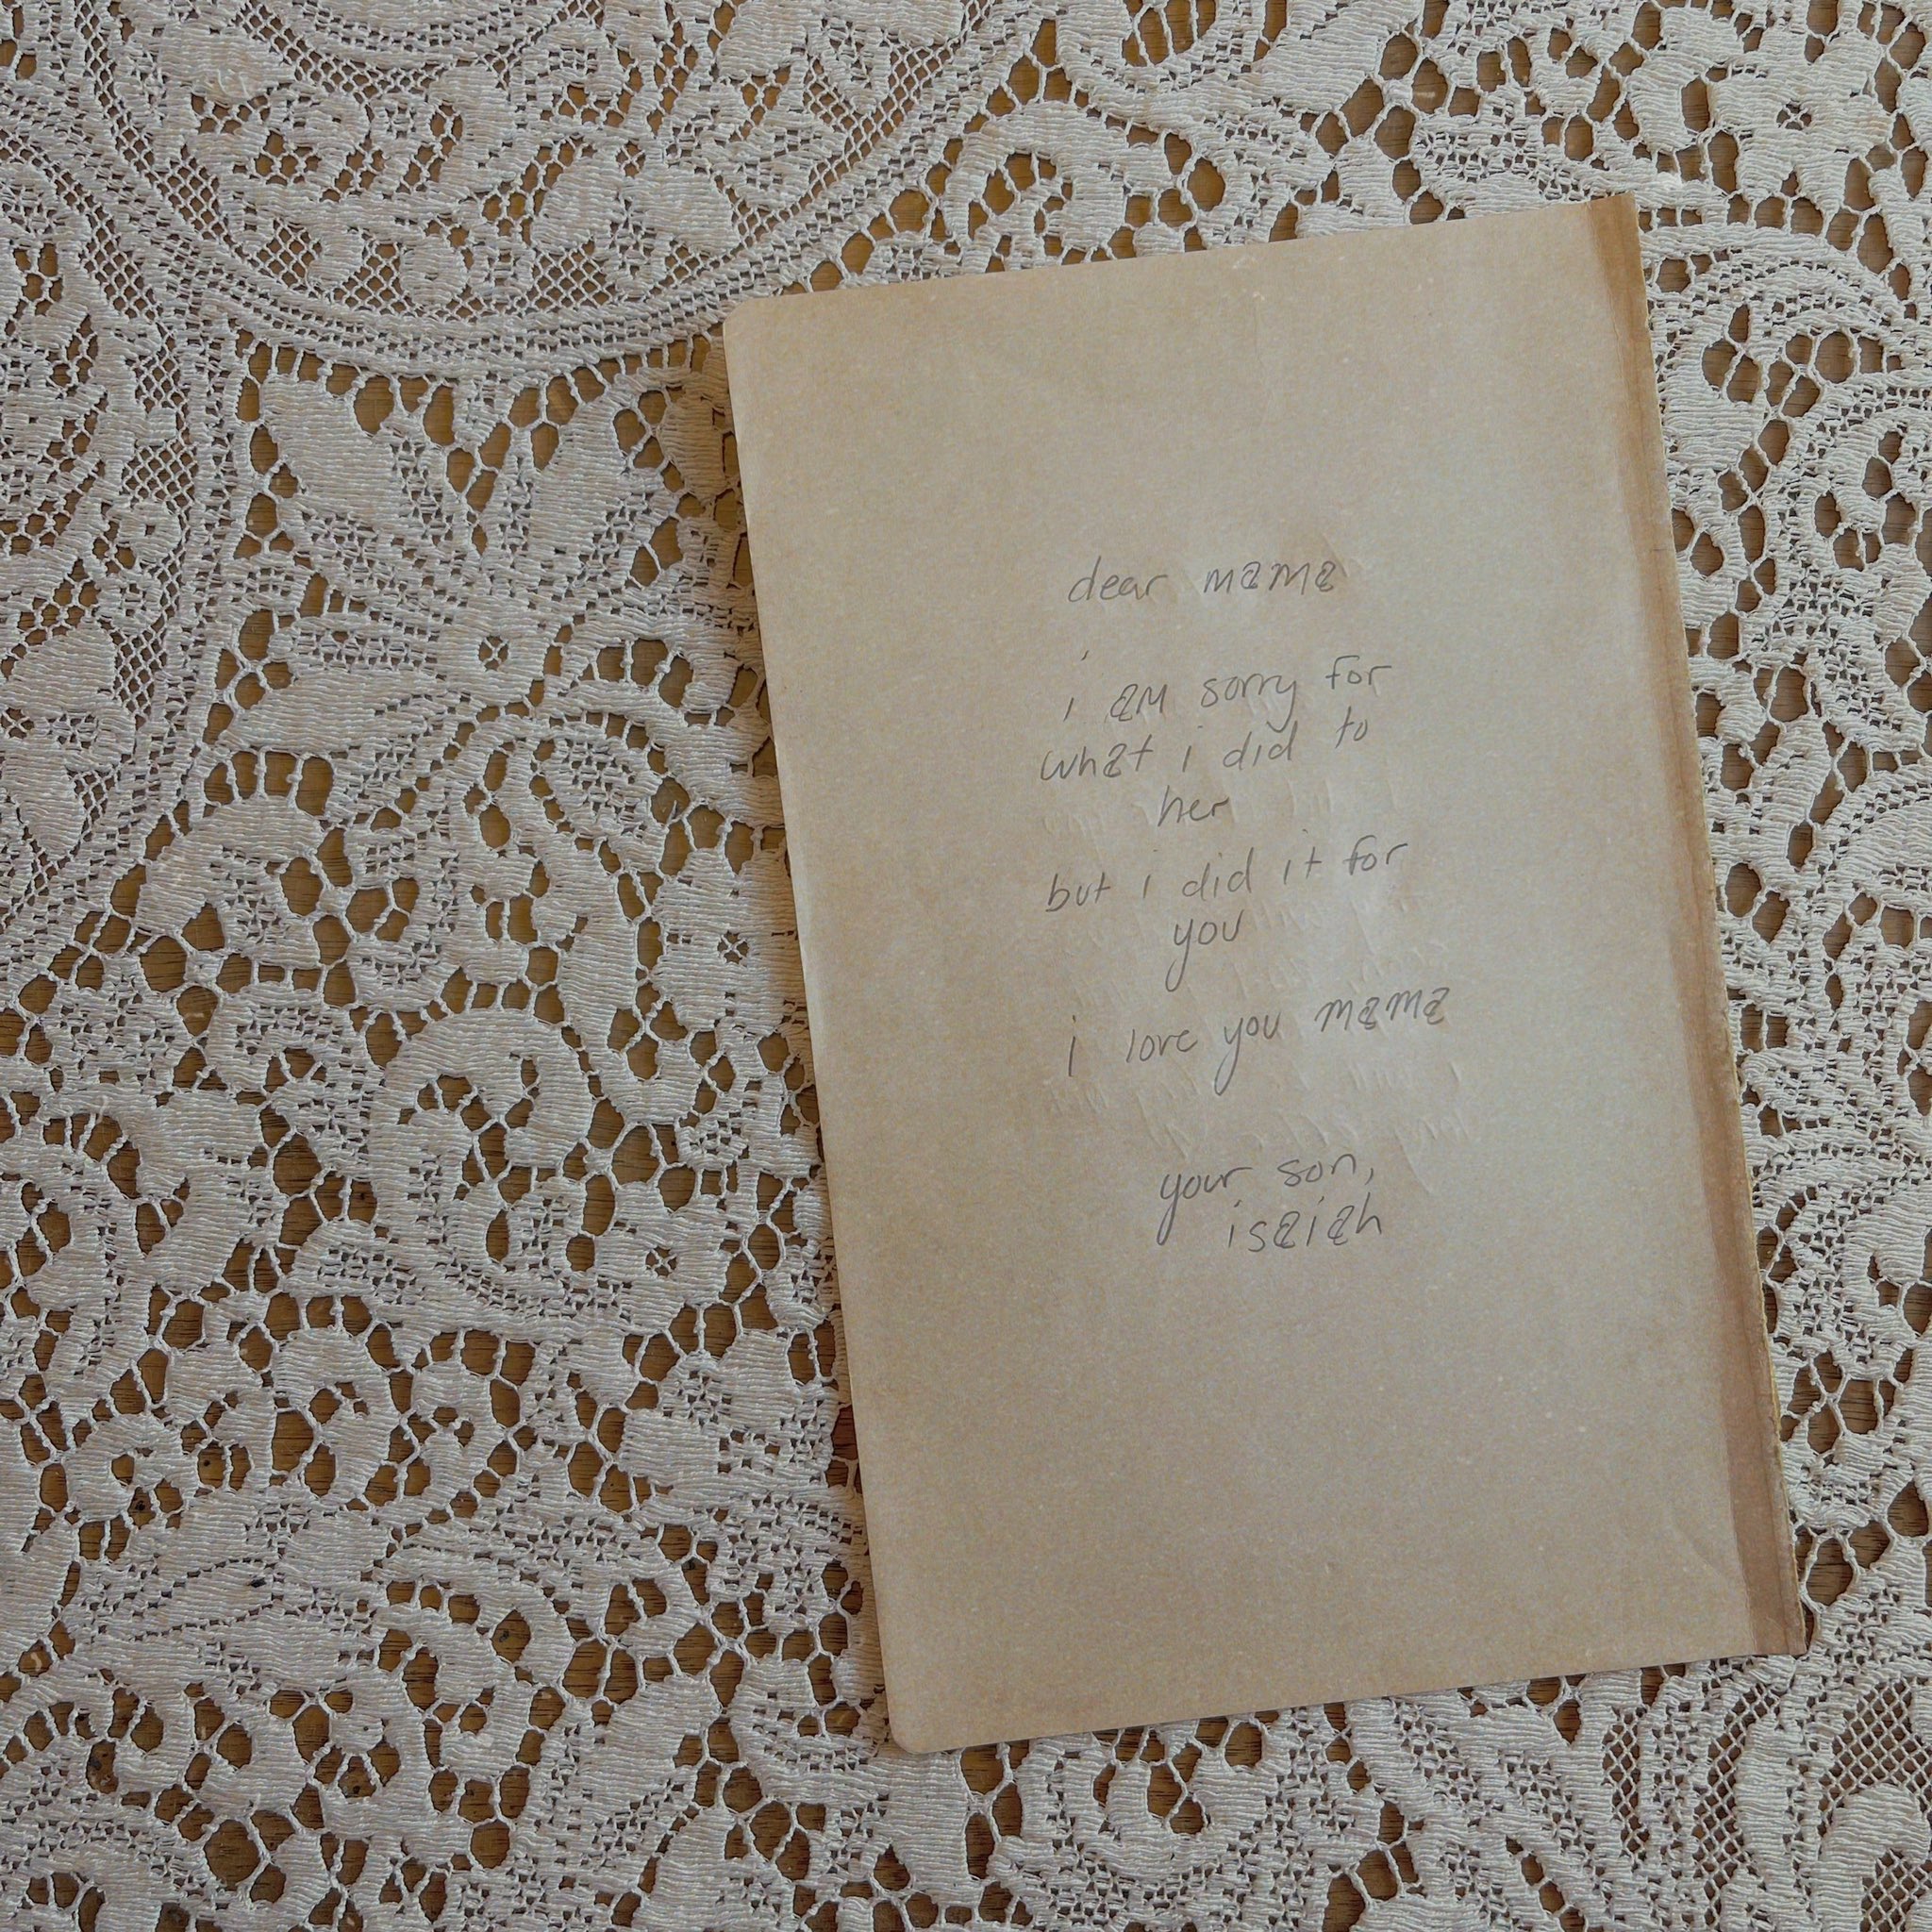 dear mama
i am sorry for
what i did to
her
but i did it for
you
i love you mama
your son,
isaiah